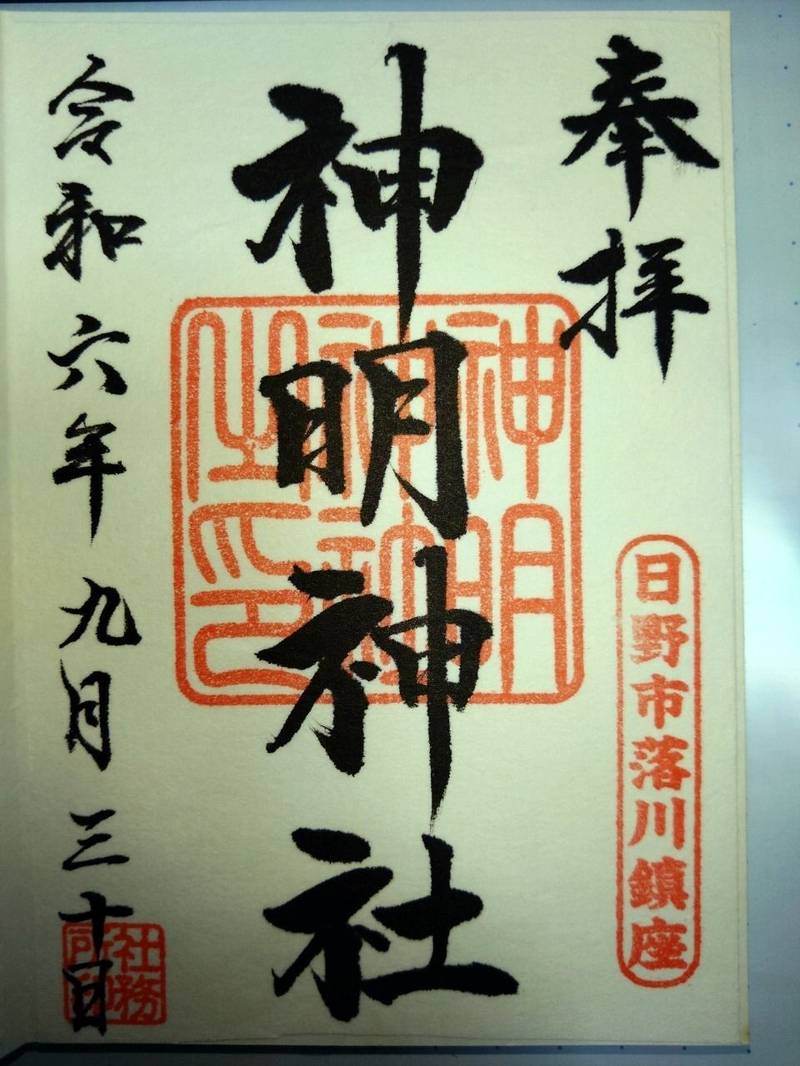 奉拝
日野市落川鎮座
神明神社
神明神社之印
令和六年九月三十日
社務所印